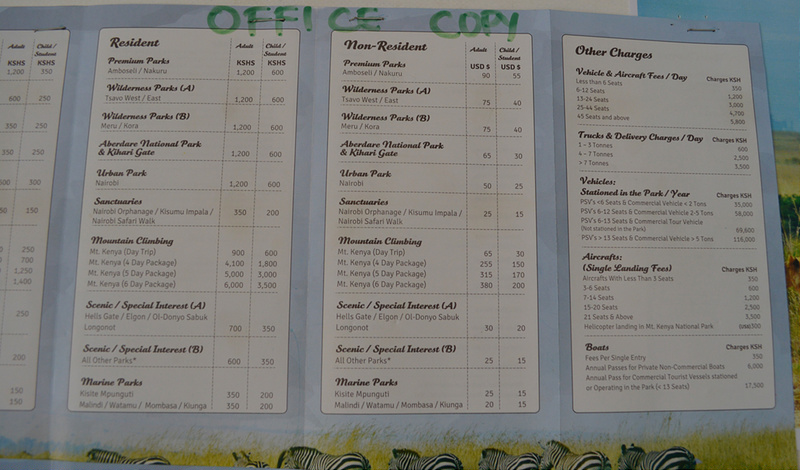 OFFICE COPY
Adult Child / Student
KSHS KSHS
1,200 350
600 250
350 250
350 250
600 300
250 150
250
700
1,250
1,400
250
200
150
150
Resident Adult Child / Student
Premium Parks KSHS KSHS
Amboseli / Nakuru 1,200 600
Wilderness Parks (A)
Tsavo West / East 1,200 600
Wilderness Parks (B)
Meru / Kora 1,200 600
Aberdare National Park
& Kihari Gate 1,200 600
Urban Park
Nairobi 1,200 600
Sanctuaries
Nairobi Orphanage / Kisumu Impala / 350 200
Nairobi Safari Walk
Mountain Climbing
Mt. Kenya (Day Trip) 900 600
Mt. Kenya (4 Day Package) 4,100 1,800
Mt. Kenya (5 Day Package) 5,000 3,000
Mt. Kenya (6 Day Package) 6,000 3,500
Scenic / Special Interest (A)
Hells Gate / Elgon / Ol-Donyo Sabuk
Longonot 700 350
Scenic / Special Interest (B)
All Other Parks* 600 350
Marine Parks
Kisite Mpunguti 350 200
Malindi / Watamu / Mombasa / Kiunga 350 200
Non-Resident Adult Child / Student
Premium Parks USD $ USD $
Amboseli / Nakuru 90 55
Wilderness Parks (A)
Tsavo West / East 75 40
Wilderness Parks (B)
Meru / Kora 75 40
Aberdare National Park
& Kihari Gate 65 30
Urban Park
Nairobi 50 25
Sanctuaries
Nairobi Orphanage / Kisumu Impala / 25 15
Nairobi Safari Walk
Mountain Climbing
Mt. Kenya (Day Trip) 65 30
Mt. Kenya (4 Day Package) 255 150
Mt. Kenya (5 Day Package) 315 170
Mt. Kenya (6 Day Package) 380 200
Scenic / Special Interest (A)
Hells Gate / Elgon / Ol-Donyo Sabuk
Longonot 30 20
Scenic / Special Interest (B)
All Other Parks* 25 15
Marine Parks
Kisite Mpunguti 25 15
Malindi / Watamu / Mombasa / Kiunga 20 15
Other Charges
Vehicle & Aircraft Fees / Day Charges KSH
Less than 6 Seats 350
6-12 Seats 1,200
13-24 Seats 3,000
25-44 Seats 4,700
45 Seats and above 5,800
Trucks & Delivery Charges / Day Charges KSH
1 – 3 Tonnes 600
4 – 7 Tonnes 2,500
> 7 Tonnes 3,500
Vehicles:
Stationed in the Park / Year Charges KSH
PSV's <6 Seats & Commercial Vehicle < 2 Tons 35,000
PSV's 6-12 Seats & Commercial Vehicle 2-5 Tons 58,000
PSV's 6-13 Seats & Commercial Tour Vehicle
(Not stationed in the Park) 69,600
PSV's > 13 Seats & Commercial Vehicle > 5 Tons 116,000
Aircrafts:
(Single Landing Fees) Charges KSH
Aircrafts With Less Than 3 Seats 350
3-6 Seats 600
7-14 Seats 1,200
15-20 Seats 2,500
21 Seats & Above 3,500
Helicopter landing in Mt. Kenya National Park 300
Boats Charges KSH
Fees Per Single Entry 350
Annual Passes for Private Non-Commercial Boats 6,000
Annual Pass for Commercial Tourist Vessels stationed
or Operating in the Park (< 13 Seats) 17,500